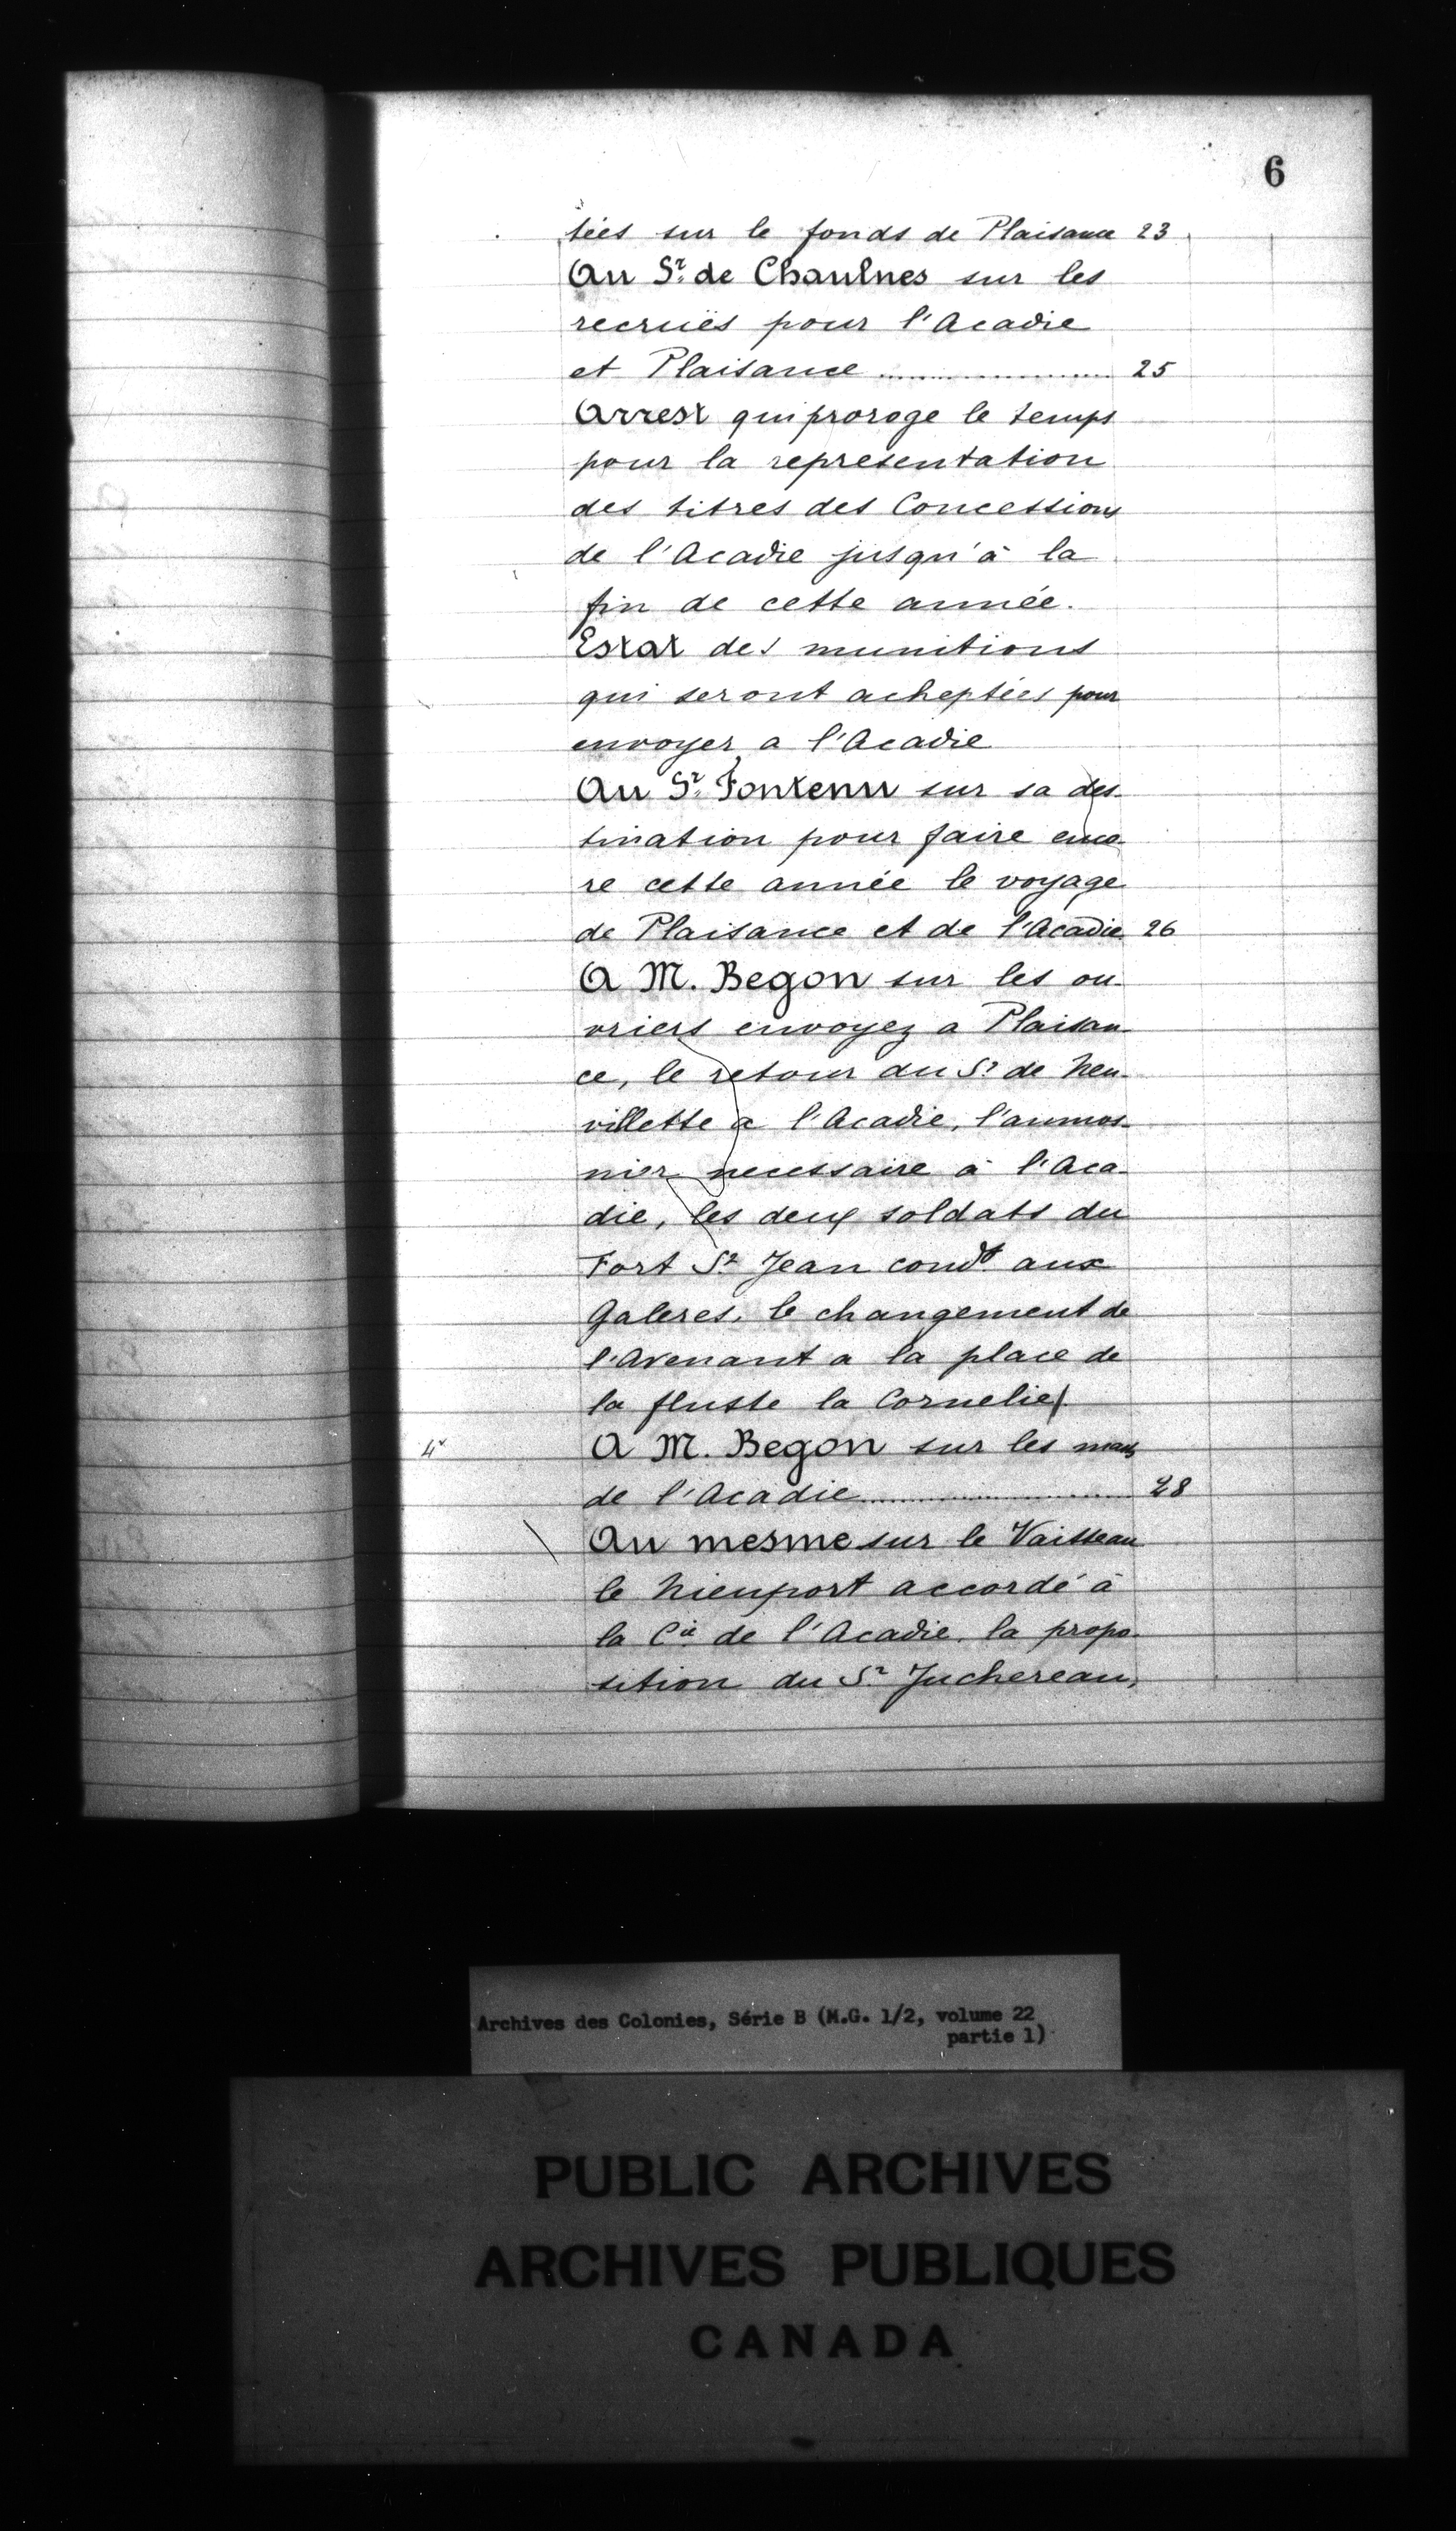 6
tées sur le fonds de Plaisance 23
Au Sr. de Chaulnes sur les
recruës pour l'Acadie
et Plaisance .......................... 25
Arrest qui proroge le temps
pour la representation
des titres des Concessions
de l'Acadie jusqu'à la
fin de cette année.
Estat des munitions
qui seront acheptées pour
envoyer a l'Acadie
Au Sr. Fontenu sur sa des-
tination pour faire enco-
re cette année le voyage
de Plaisance et de l'Acadie 26
A M. Begon sur les ou-
vriers envoyez a Plaisan-
ce, le retour du Sr de Neu-
villette a l'Acadie, l'aumos-
nier necessaire à l'Aca-
die, les deux soldats du
Fort St Jean condt aux
Galeres, le changement de
l'Avenant a la place de
la fluste la Cornelie
4v
A M. Begon sur les mats
de l'Acadie .......................... 28
Au mesme sur le Vaisseau
le Nieuport accordé à
la Cie de l'Acadie, la propo-
sition du Sr Juchereau,
Archives des Colonies, Série B (M.G. 1/2, volume 22
partie 1)
PUBLIC ARCHIVES
ARCHIVES PUBLIQUES
CANADA